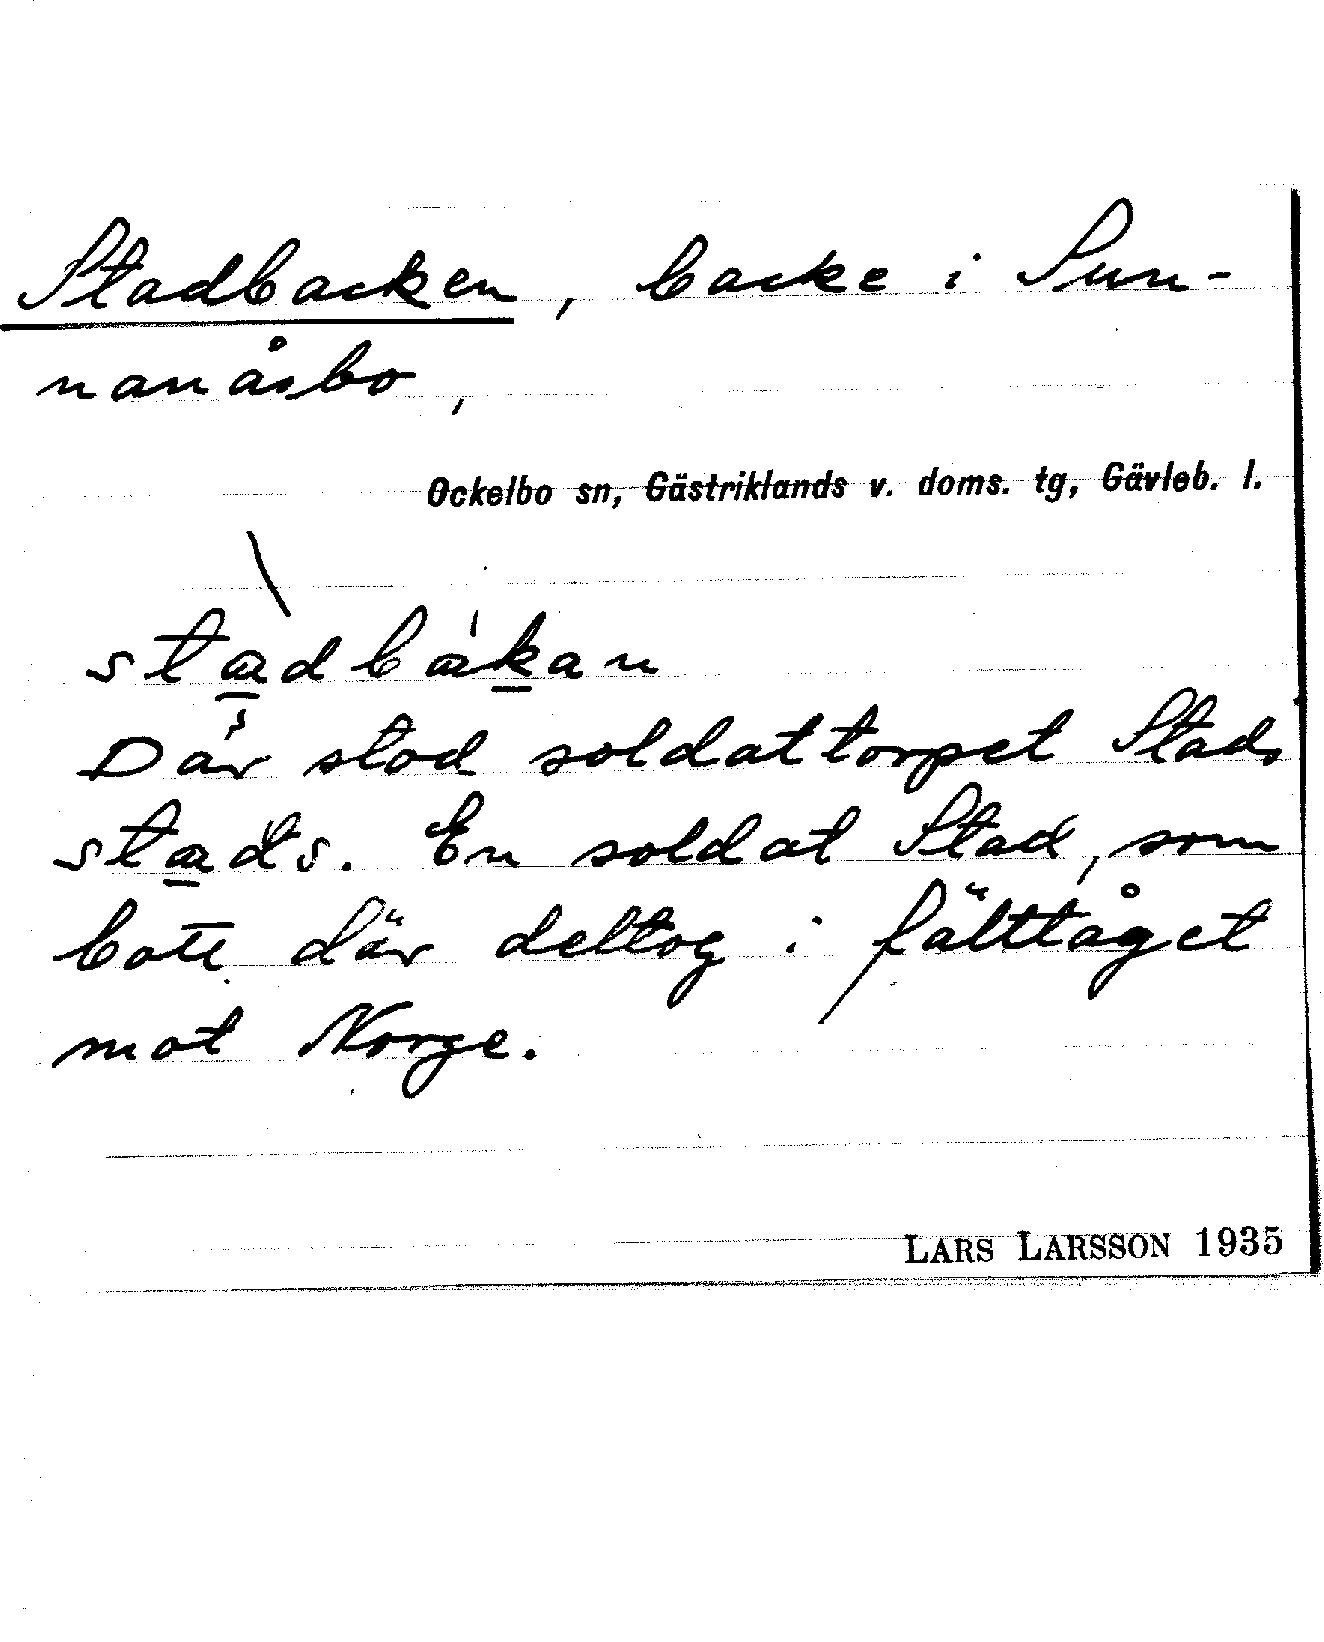 Stadbacken, backe i Sun-
nanåsbo,
Ockelbo sn, Gästriklands v. doms. tg, Gävleb. l.
stadbakan
Där stod soldattorpet Stads
stads. En soldat Stad, som
bott där deltog i fälttåget
mot Norge.
LARS LARSSON 1935